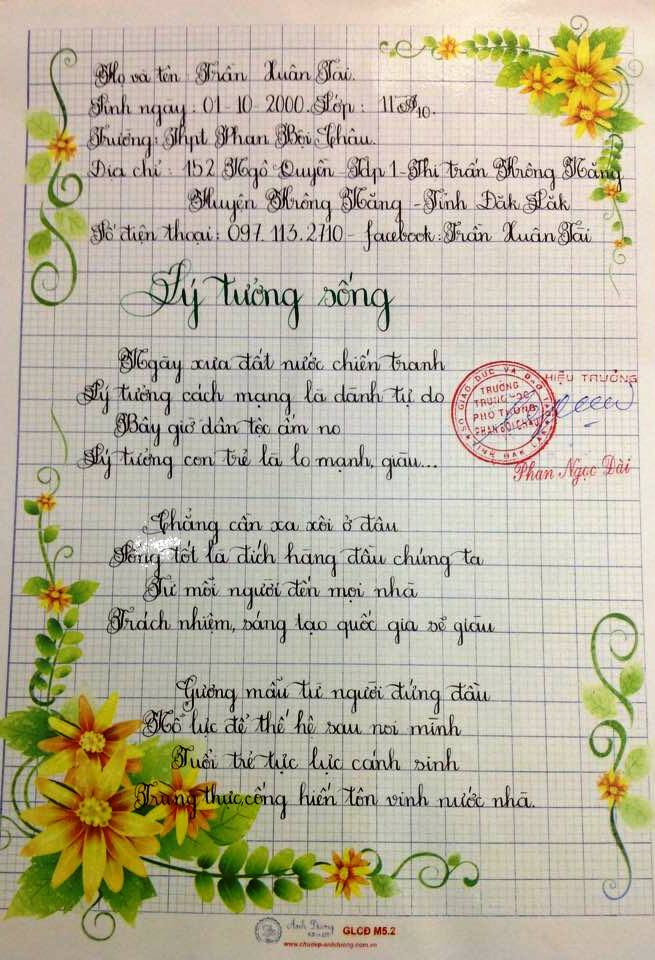 Họ và tên : Trần Xuân Tài.
Sinh ngày : 01-10-2000. Lớp : 11A10.
Trường: Thpt Phan Bội Châu.
Địa chỉ : 152 Ngô Quyền - Tdp 1 - Thị trấn Krông Năng
Huyện Krông Năng - Tỉnh Đăk Lăk
Số điện thoại : 097.113.2710 - facebook: Trần Xuân Tài
Lý tưởng sống
Ngày xưa đất nước chiến tranh
Lý tưởng cách mạng là dành tự do
Bây giờ dân tộc ấm no
Lý tưởng con trẻ là lo mạnh, giàu...
HIỆU TRƯỞNG
SỞ GIÁO DỤC VÀ ĐÀO TẠO
TRƯỜNG
TRUNG HỌC
PHỔ THÔNG
PHAN BỘI CHÂU
TỈNH ĐẮK LẮK
Phan Ngọc Đài
Chẳng cần xa xôi ở đâu
Sống tốt là đích hàng đầu chúng ta
Từ mỗi người đến mọi nhà
Trách nhiệm, sáng tạo quốc gia sẽ giàu
Gương mẫu từ người đứng đầu
Nổ lực để thế hệ sau noi mình
Tuổi trẻ tực lực cánh sinh
Trung thực, cống hiến tôn vinh nước nhà.
Ánh Dương
GLCĐ M5.2
www.chudep-anhduong.com.vn